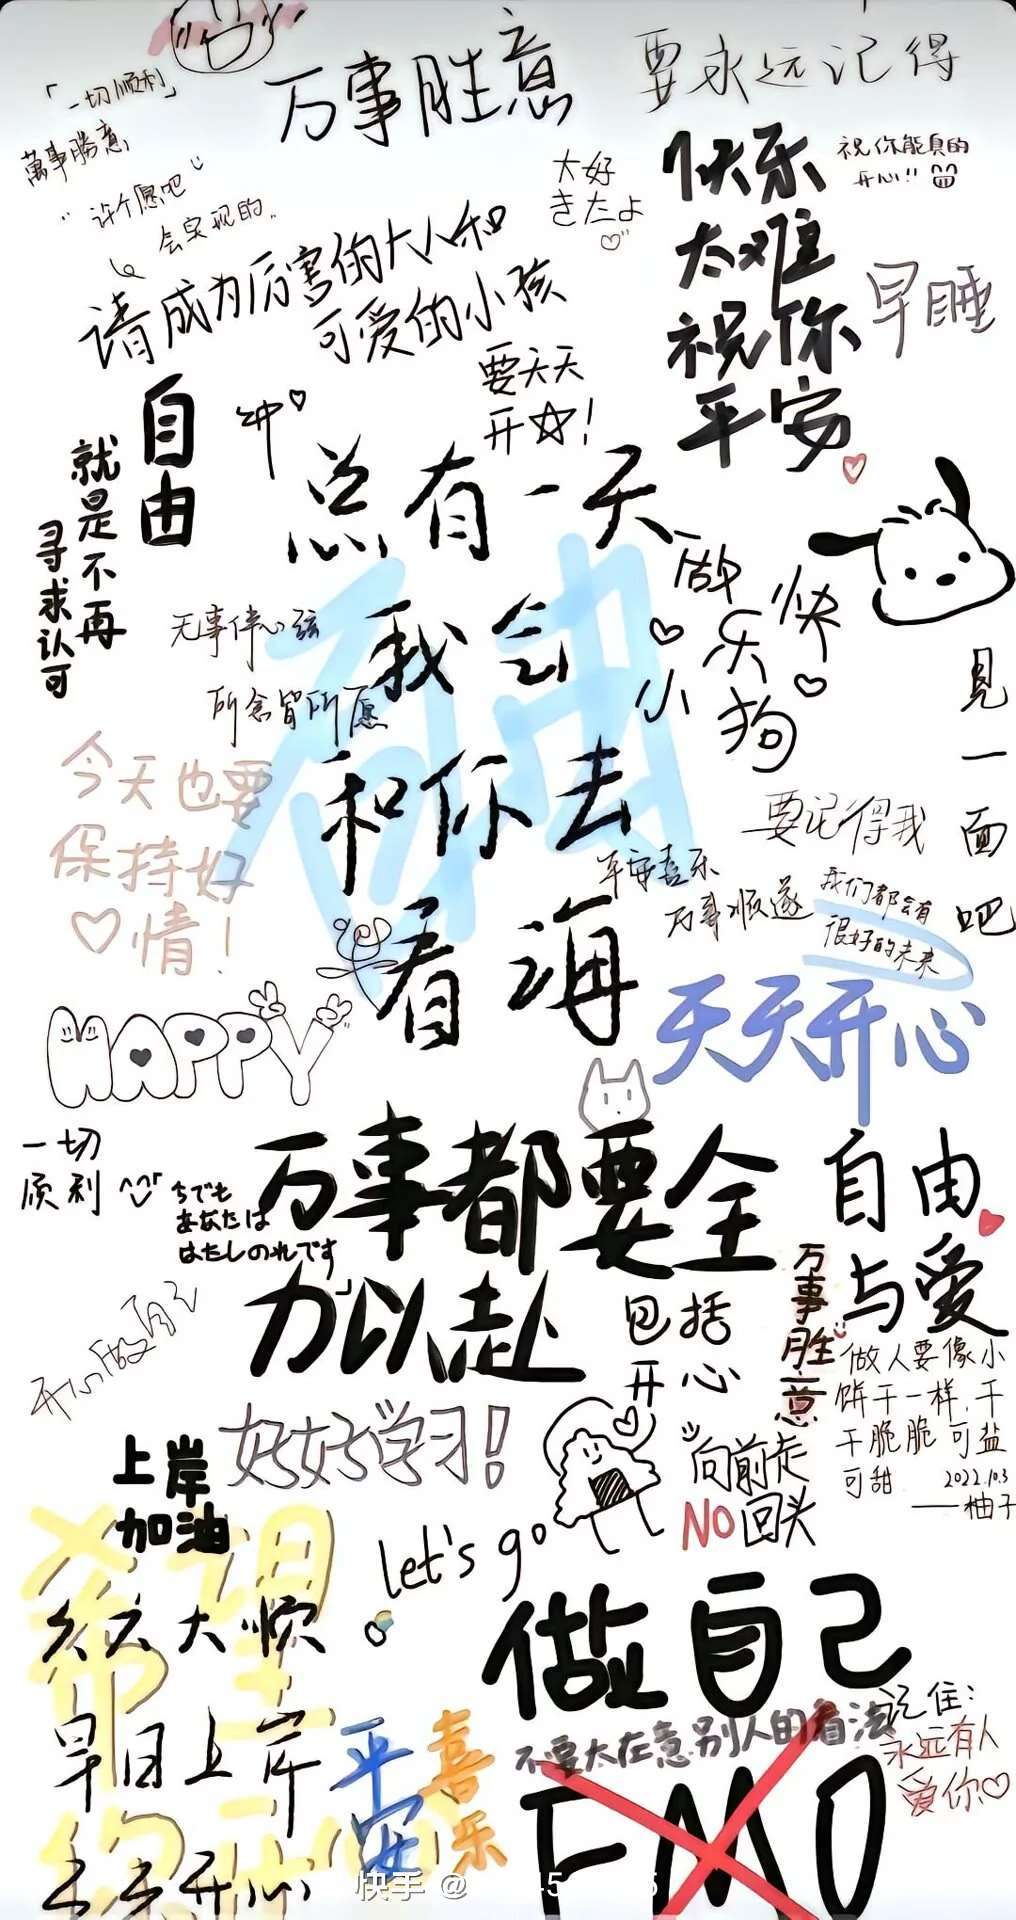 「一切顺利」
万事胜意
要永远记得
萬事勝意
许个愿吧
会实现的。
大好
きだよ
快乐
太难
祝你
平安
祝你能真的
开心!!
早睡
请成为厉害的大人和
可爱的小孩
要天天
开☆!
自由
就是不再
寻求认可
总有一天
我会
和你去
看海
自由
做
快
乐
小
狗
见一面吧
无事伴心弦
所念皆所愿
今天也要
保持好
♡情!
要记得我
平安喜乐
万事顺遂
我们都会有
很好的未来
天天开心
HAPPY
一切
顺利
ちでも
あなたは
はたしのれです
万事都要全
力以赴
包括
开心
自由
与爱
万事胜意
做人要像小
饼干一样,干
干脆脆可盐
可甜 2022.10.3
——柚子
好好学习!
向前走
NO回头
上岸
加油
let's go
希望
天天大顺
早日上岸
天天开心
平安
喜乐
做自己
不要太在意别人的看法
记住:
永远有人
爱你♡
EMO
快手 @